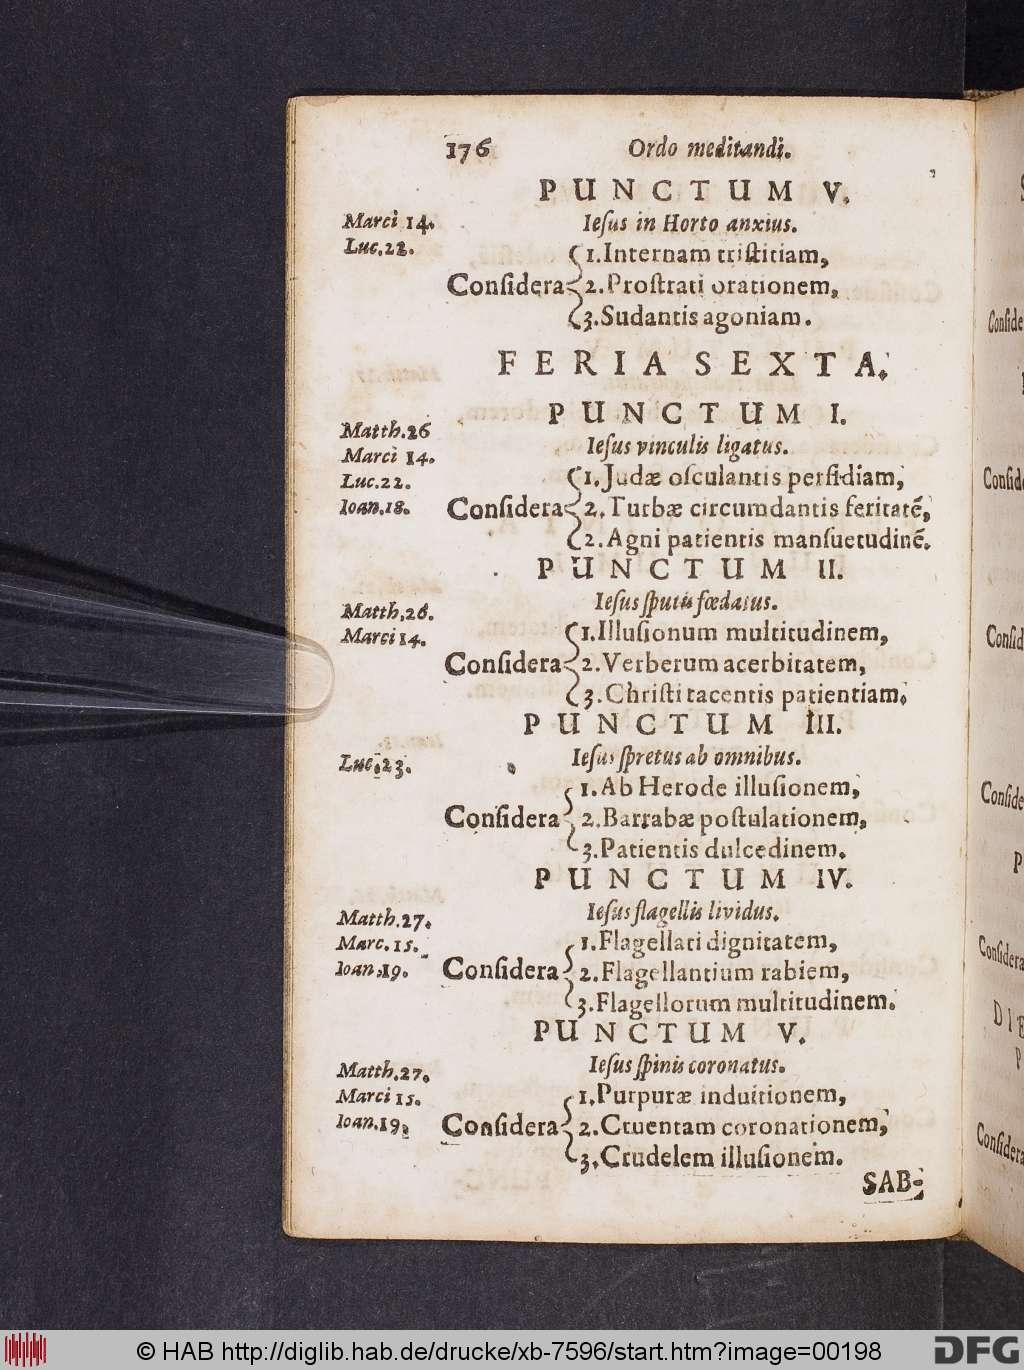 176 Ordo meditandi.
PUNCTUM V.
Marci 14. Iesus in Horto anxius.
Luc. 22. 1. Internam tristitiam,
Considera 2. Prostrati orationem,
3. Sudantis agoniam.
FERIA SEXTA.
PUNCTUM I.
Matth. 26
Marci 14. Iesus vinculis ligatus.
Luc. 22. 1. Judæ osculantis perfidiam,
Ioan. 18. Considera 2. Turbæ circumdantis feritatẽ,
2. Agni patientis mansuetudinẽ.
PUNCTUM II.
Matth. 26. Iesus sputis fœdatus.
Marci 14. 1. Illusionum multitudinem,
Considera 2. Verberum acerbitatem,
3. Christi tacentis patientiam.
PUNCTUM III.
Luc. 23. Iesus spretus ab omnibus.
1. Ab Herode illusionem,
Considera 2. Barrabæ postulationem,
3. Patientis dulcedinem.
PUNCTUM IV.
Matth. 27. Iesus flagellis lividus.
Marc. 15. 1. Flagellati dignitatem,
Ioan. 19. Considera 2. Flagellantium rabiem,
3. Flagellorum multitudinem.
PUNCTUM V.
Matth. 27. Iesus spinis coronatus.
Marci 15. 1. Purpuræ induitionem,
Ioan. 19. Considera 2. Cruentam coronationem,
3. Crudelem illusionem.
SAB-
© HAB http://diglib.hab.de/drucke/xb-7596/start.htm?image=00198
DFG